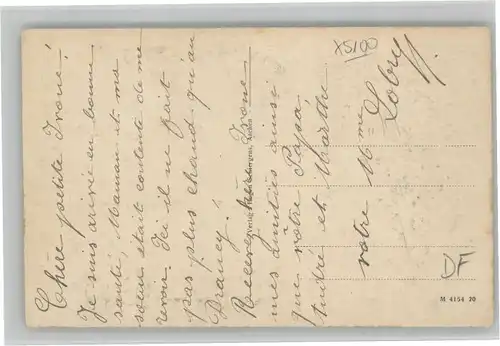 Chère petite Irone!
Je suis arrivé en bonne
santé, Maman et ma
soeur était contente de me
revoir. Ici il ne fait
pas plus chaud qu'au
Drancy!
Recevez Irone
mes amitiés ainsi
que votre Papa
André et Marthe
votre Mme Lobry
X5/00
DF
M 4154 20